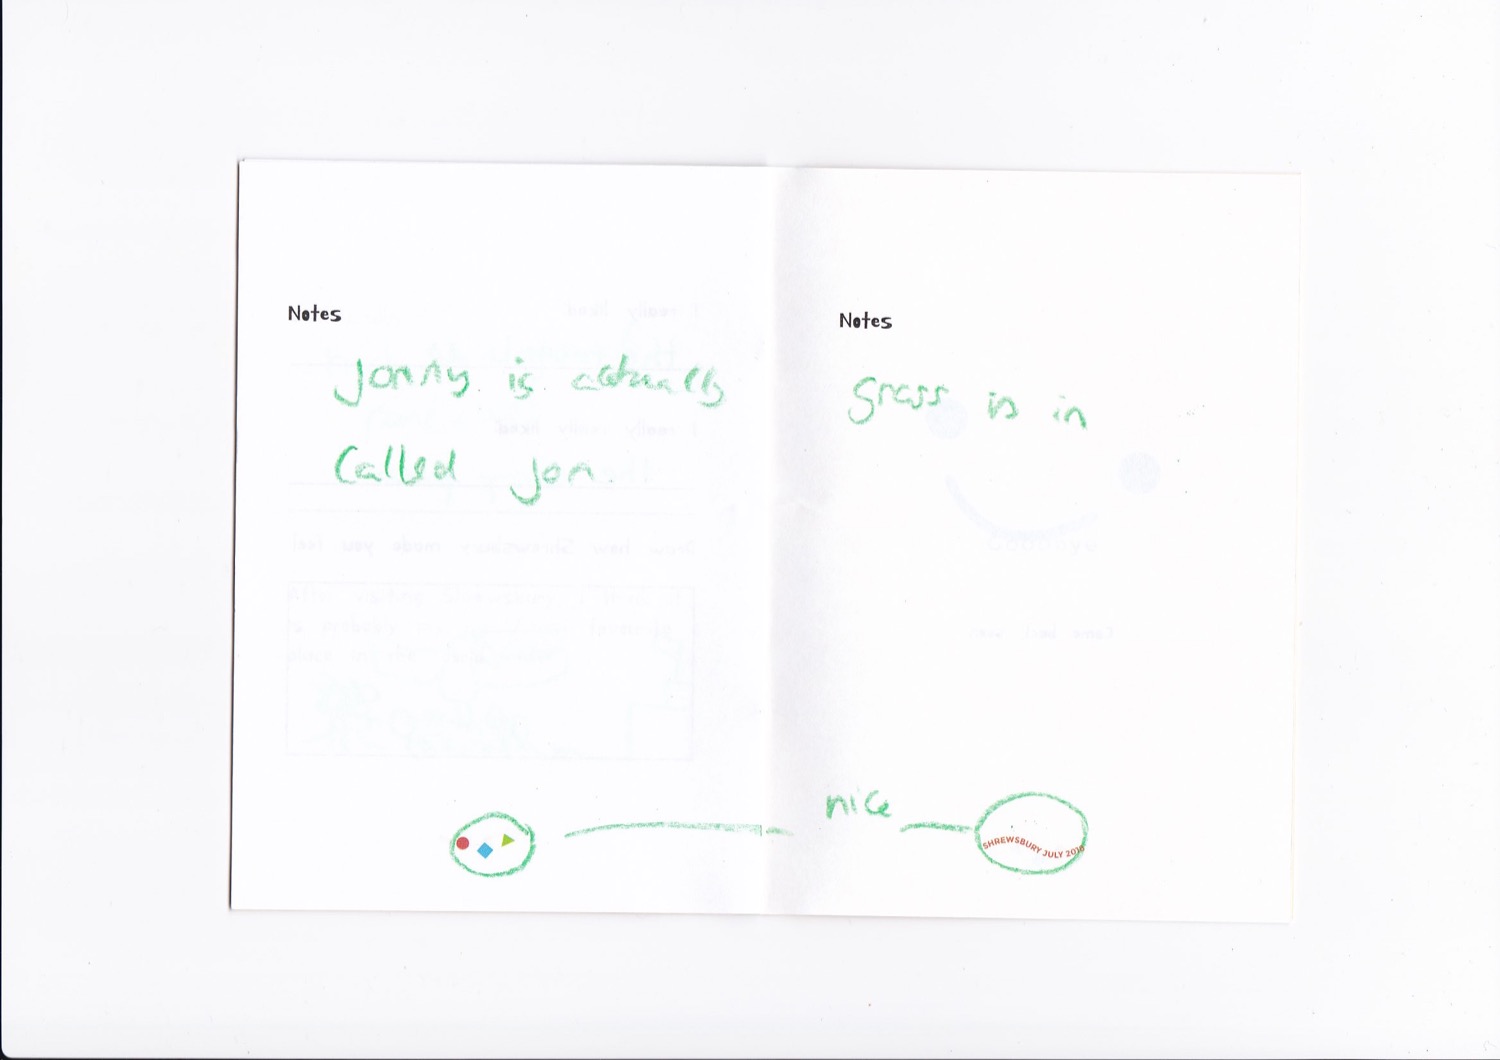 Notes
Jonny is actually
Called Jon.
Notes
Grass is in
nice
SHREWSBURY JULY 2016